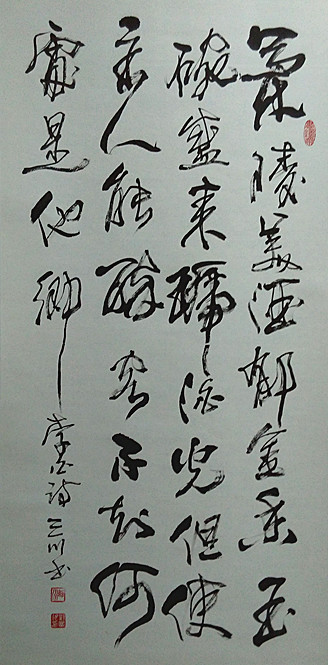 蘭陵美酒郁金香玉
碗盛来琥珀光但使
主人能醉客不知何
處是他鄉
李白詩 三川书